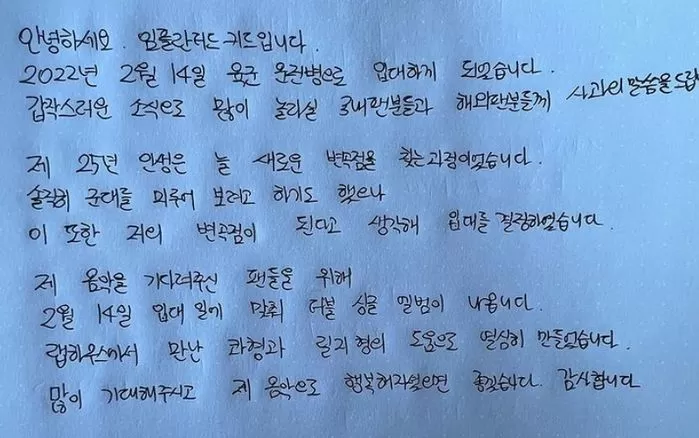 안녕하세요. 임플란티드 키드입니다.
2022년 2월 14일 육군 운전병으로 입대하게 되었습니다.
갑작스러운 소식으로 많이 놀라실 국내팬분들과 해외팬분들께 사과의 말씀을 드립
제 25년 인생은 늘 새로운 변곡점을 찾는 과정이었습니다.
솔직히 군대를 미루어 보려고 하기도 했으나
이 또한 저의 변곡점이 된다고 생각해 입대를 결정하였습니다.
제 음악을 기다려주신 팬들을 위해
2월 14일 입대 일에 맞춰 더블 싱글 앨범이 나옵니다.
랩하우스에서 만난 콰형과 릴지 형의 도움으로 열심히 만들었습니다.
많이 기대해주시고 제 음악으로 행복해지셨으면 좋겠습니다. 감사합니다